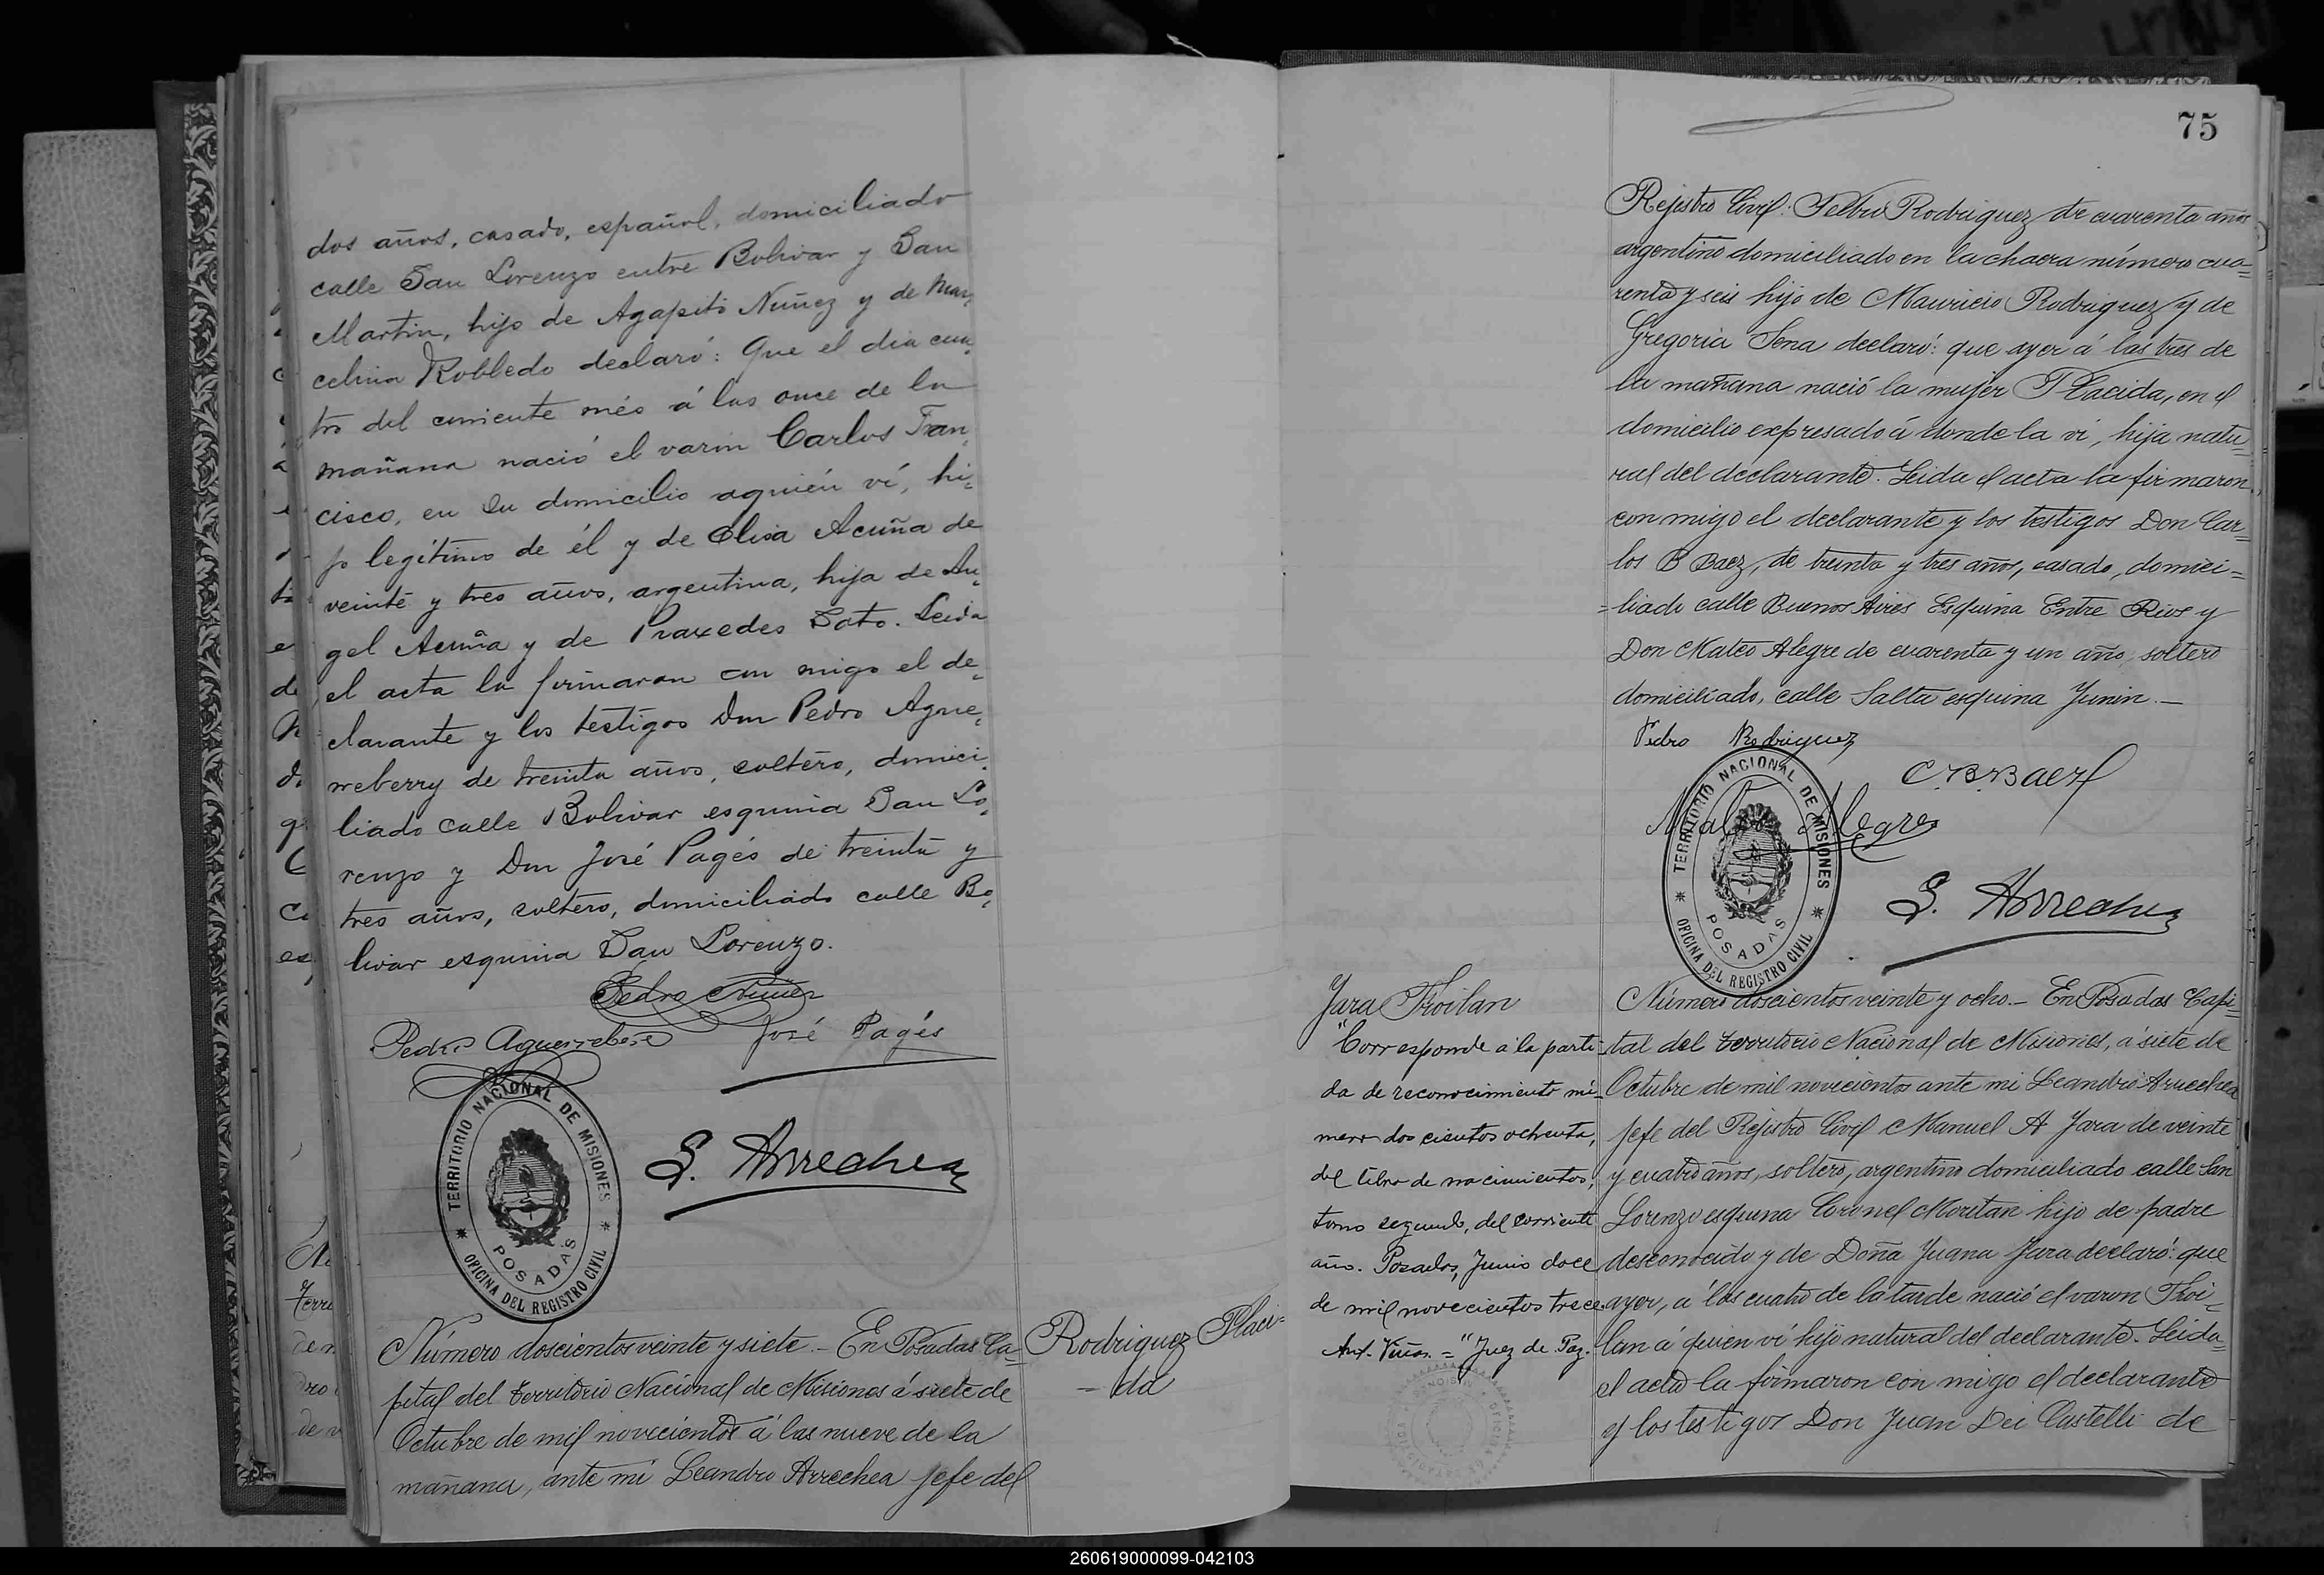 dos años, casado, español, domiciliado
calle San Lorenzo entre Bolivar y San
Martin, hijo de Agapito Nuñez y de Mar,
celina Robledo declaró: Que el dia cua,
tro del corriente més á las once de la
mañana nació el varon Carlos Fran,
cisco, en su domicilio aquién ví, hi,
jo legítimo de él y de Elisa Acuña de
veinte y tres años, argentina, hija de An,
gel Acuña y de Praxedes Soto. Leida
el acta la firmaron con migo el de,
clarante y los testigos Don Pedro Ague,
rreberry de treinta años, soltero, domici,
liado calle Bolivar esquina San Lo,
renzo y Don José Pagés de treinta y
tres años, soltero, domiciliado calle Bo,
livar esquina San Lorenzo.
Pedro Nuñez
Pedro Aguerreberé
José Pagés
TERRITORIO NACIONAL DE MISIONES
POSADAS
OFICINA DEL REGISTRO CIVIL
L. Arrechea
Número doscientos veinte y siete.- En Posadas Ca=
pital del territorio Nacional de Misiones á siete de
Octubre de mil novecientos á las nueve de la
mañana, ante mi Leandro Arrechea jefe del
Rodriguez Placi=
=da
75
Rejistro Civil: Pedro Rodriguez de cuarenta años
argentino domiciliado en la chacra número cua=
renta y seis hijo de Mauricio Rodriguez y de
Gregoria Sena declaró: que ayer á las tres de
la mañana nació la mujer Placida, en el
domicilio expresado á donde la vi, hija natu=
ral del declarante. Leida el acta la firmaron
con migo el declarante y los testigos Don Car=
los B Baez, de treinta y tres años, casado, domici=
=liado calle Buenos Aires Esquina Entre Rios y
Don Mateo Alegre de cuarenta y un año, soltero
domiciliado, calle Salta esquina Junin.-
Pedro Rodriguez
C. B. Baez
Mateo Alegre
TERRITORIO NACIONAL DE MISIONES
POSADAS
OFICINA DEL REGISTRO CIVIL
L. Arrechea
Jara Froilan
"Corresponde a la parti=
da de reconocimiento nú=
mero dos cientos ochenta,
del libro de nacimientos,
tomo segundo, del corriente
año. Posadas, Junio doce
de mil novecientos trece
" Juez de Paz.
Número doscientos veinte y ocho.- En Posadas Capi=
tal del territorio Nacional de Misiones, á siete de
Octubre de mil novecientos ante mi Leandro Arrechea
jefe del Rejistro Civil Manuel A Jara de veinte
y cuatro años, soltero, argentino domiciliado calle San
Lorenzo esquina Coronel Moritan hijo de padre
desconocido y de Doña Juana Jara declaró: que
ayer, a las cuatro de la tarde nació el varon Froi=
lan á quien vi hijo natural del declarante. Leida
el acta la firmaron con migo el declarante
y los testigos Don Juan Dei Castelli de
260619000099-042103